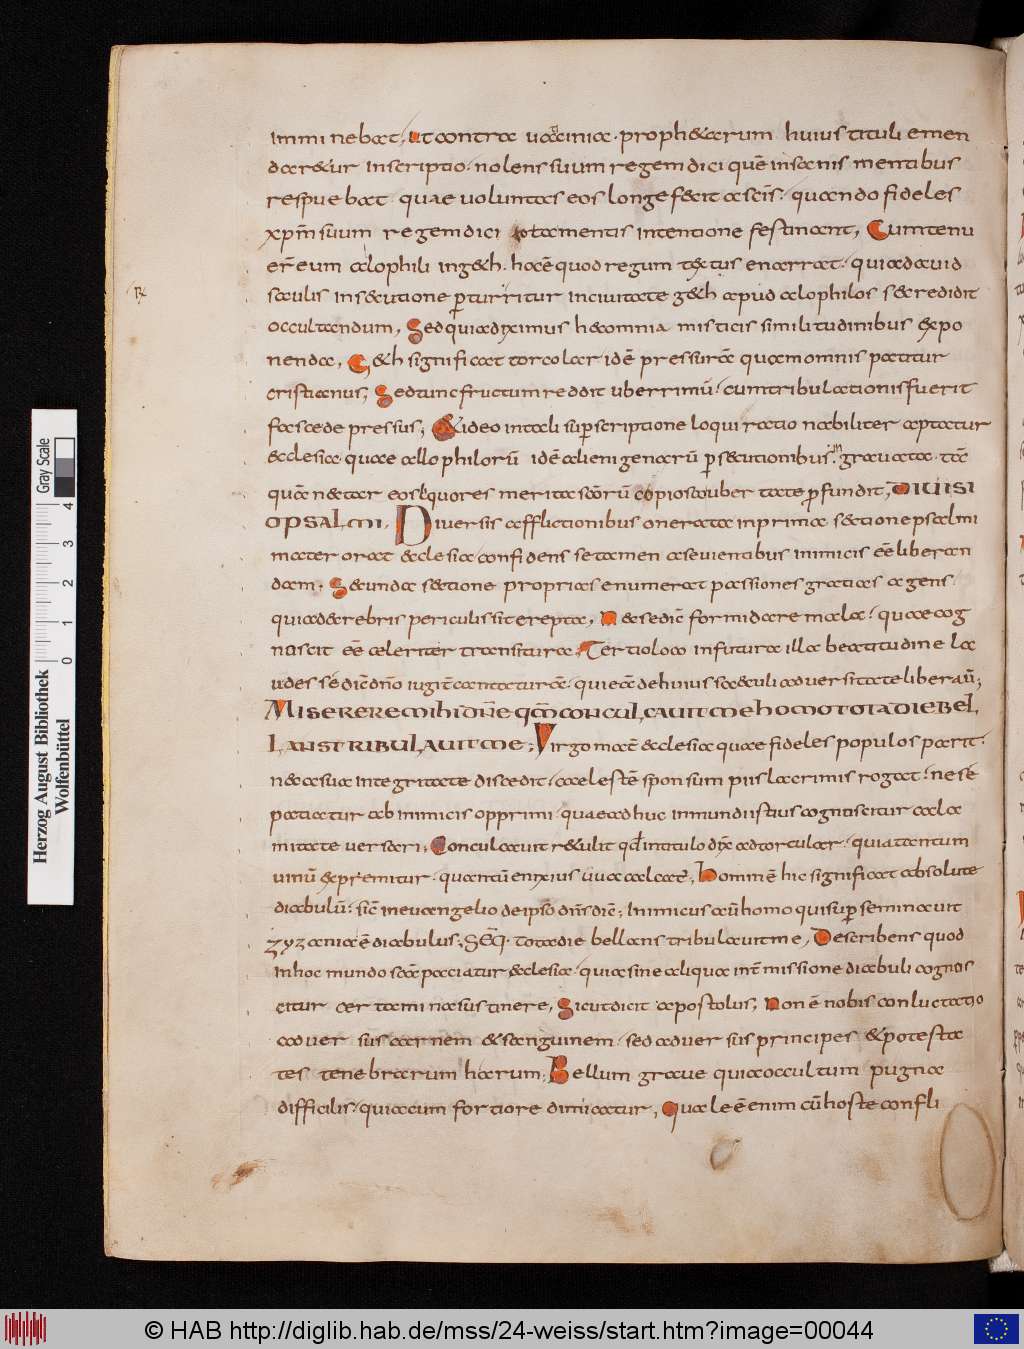 imminebat, ut contra uaticinia prophetarum huius tituli emen
daretur inscriptio. nolens suum regem dici quē insanis mentibus
respuebat. quae uoluntas eos longe facit a scīs. quando fideles
xpm̄ suum regem dici tota mentis intentione festinant, Cum tenu
er̄ eum alophili in geth. hoc ē quod regum textus enarrat. quia dauid
saulis insecutione perturritur in ciuitate geth apud alophilos se credidit
occultandum, Sed quia diximus haec omnia misticis similitudinibus expo
nenda, Geth significat torcolar idē pressurā quam omnis patitur
cristianus; Sed tunc fructum reddit uberrimū. cum tribulationis fuerit
fasce depressus; Et ideo in tali superscriptione loqui ratio nabiliter aptatur
ecclesia quae allophilorū idē alienigenarū persecutionibus ingrauata. tā
quā nectareos liquores merita scōrū copiosa ubertate perfundit; DIUISI
O PSALMI. Diuersis afflictionibus onerata in prima sectione psalmi
mater orat ecclesia confidens se tamen a seuientibus inimicis eē liberan
dam. Secunda sectione proprias enumerat passiones gratias agens.
quia de crebris periculis sit erepta, Nec se dic̄ formidare mala. quae cog
nascit eē celeriter transitura. Tertio loco in futura illa beatitudine la
udes sē dic̄ dn̄o iugit̄ cantaturā. qui eā de huius saeculi aduersitate liberau̅;
MISERERE MIHI DN̄E QM̄ CONCULCAUIT ME HOMO TOTA DIE BEL
LANS TRIBULAUIT ME; Virgo mat̄ ecclesia quae fideles populos parit.
nec a sua integritate discedit. caelestē sponsum piis lacrimis rogat. ne se
patiatur ab inimicis opprimi. quae adhuc in mundi istius cognascitur cala
mitate uersari; Conculcauit retulit qd̄ in titulo dix̄ ad torcular. quia tantum
uinū exprimitur. quantū enixius uua calcat̄; Hominē hic significat absolute
diabulū. sic̄ in euangelio de ipso dn̄s dic̄; Inimicus aut̄ homo qui superseminauit
zyzania ē diabulus; Seq̄. tota die bellans tribulauit me, Describens quod
in hoc mundo sca paciatur ecclesia. quia sine aliqua int̄missione diabuli cognas
citur certamina sustinere, Sicut dicit apostolus; Non ē nobis conluctatio
aduersus carnem et sanguinem. sed aduersus principes et potesta
tes tenebrarum harum; Bellum graue quia occultum pugna
difficilis, quia cum fortiore dimicatur, Quale ē enim cū hoste confli
Herzog August Bibliothek
Wolfenbüttel
0 1 2 3 4
Gray Scale
© HAB http://diglib.hab.de/mss/24-weiss/start.htm?image=00044